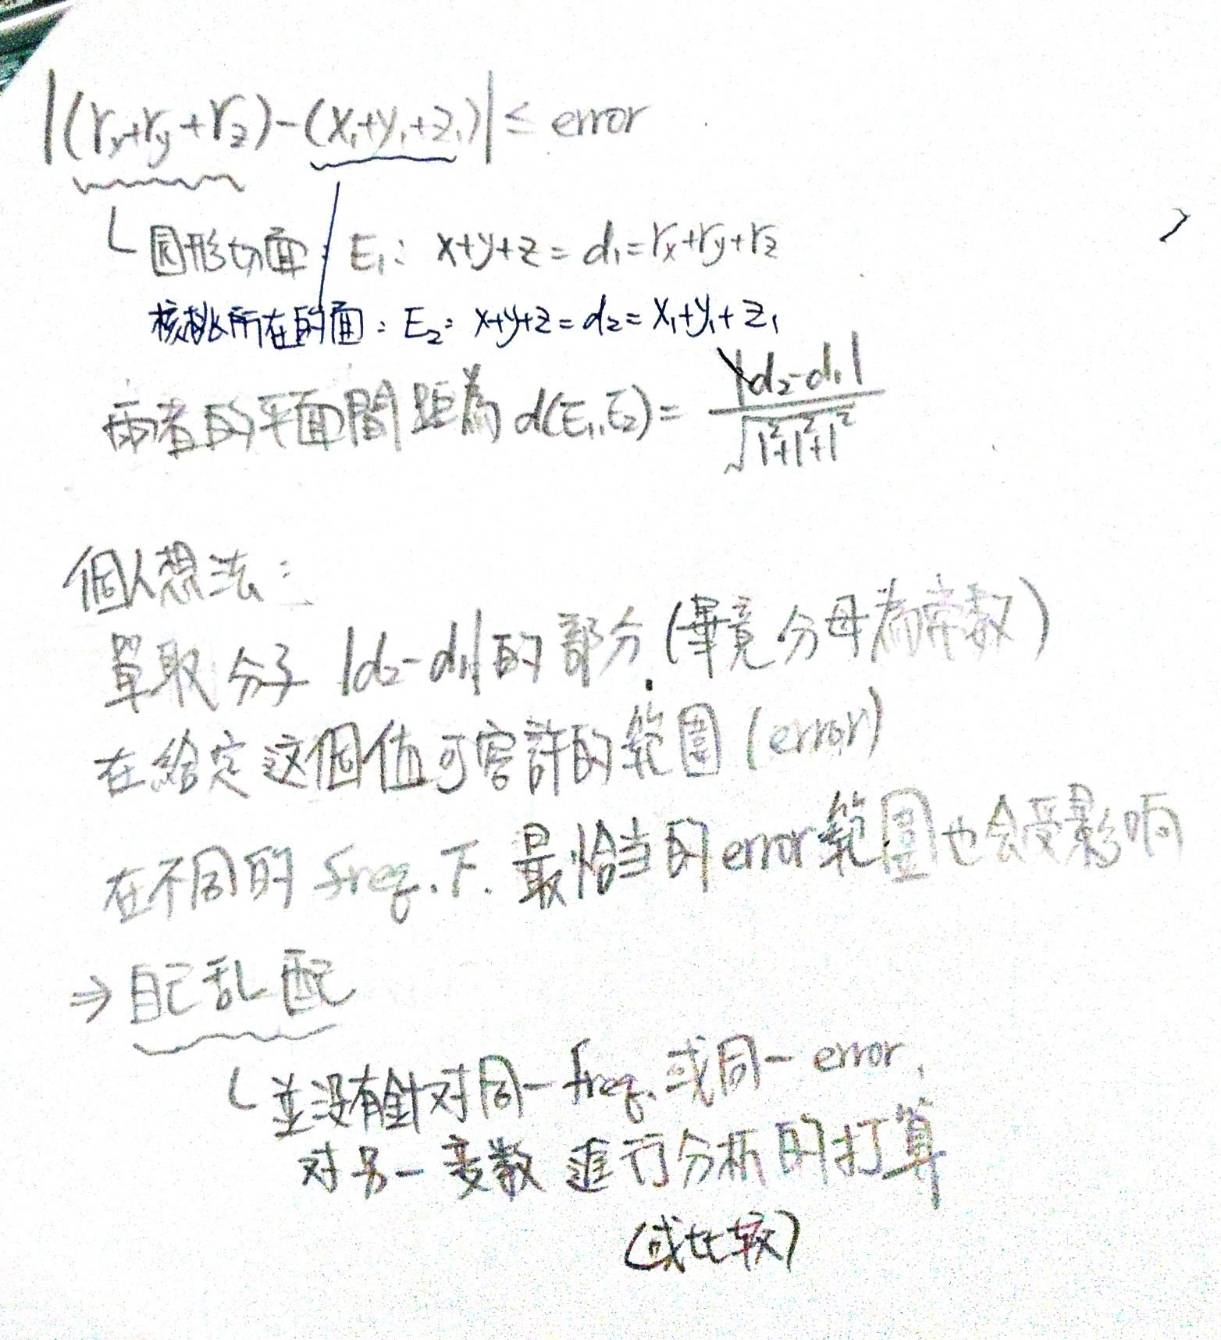 |(rx+ry+rz)-(x₁+y₁+z₁)| ≤ error
圆形切面: E₁: x+y+z = d₁ = rx+ry+rz
核桃所在的面: E₂: x+y+z = d₂ = x₁+y₁+z₁
兩者的平面間距為 d(E₁,E₂) = |d₂-d₁| / √(1²+1²+1²)
個人想法:
單取分子 |d₂-d₁| 的部分 (畢竟分母為常数)
在給定这個值可容許的範圍 (error)
在不同的 freq. 下. 最恰当的 error 範圍也会受影响
⇒ 自己乱配
並没有針对同一 freq. 或同一 error,
对另一变数 進行分析的打算
(或比较)